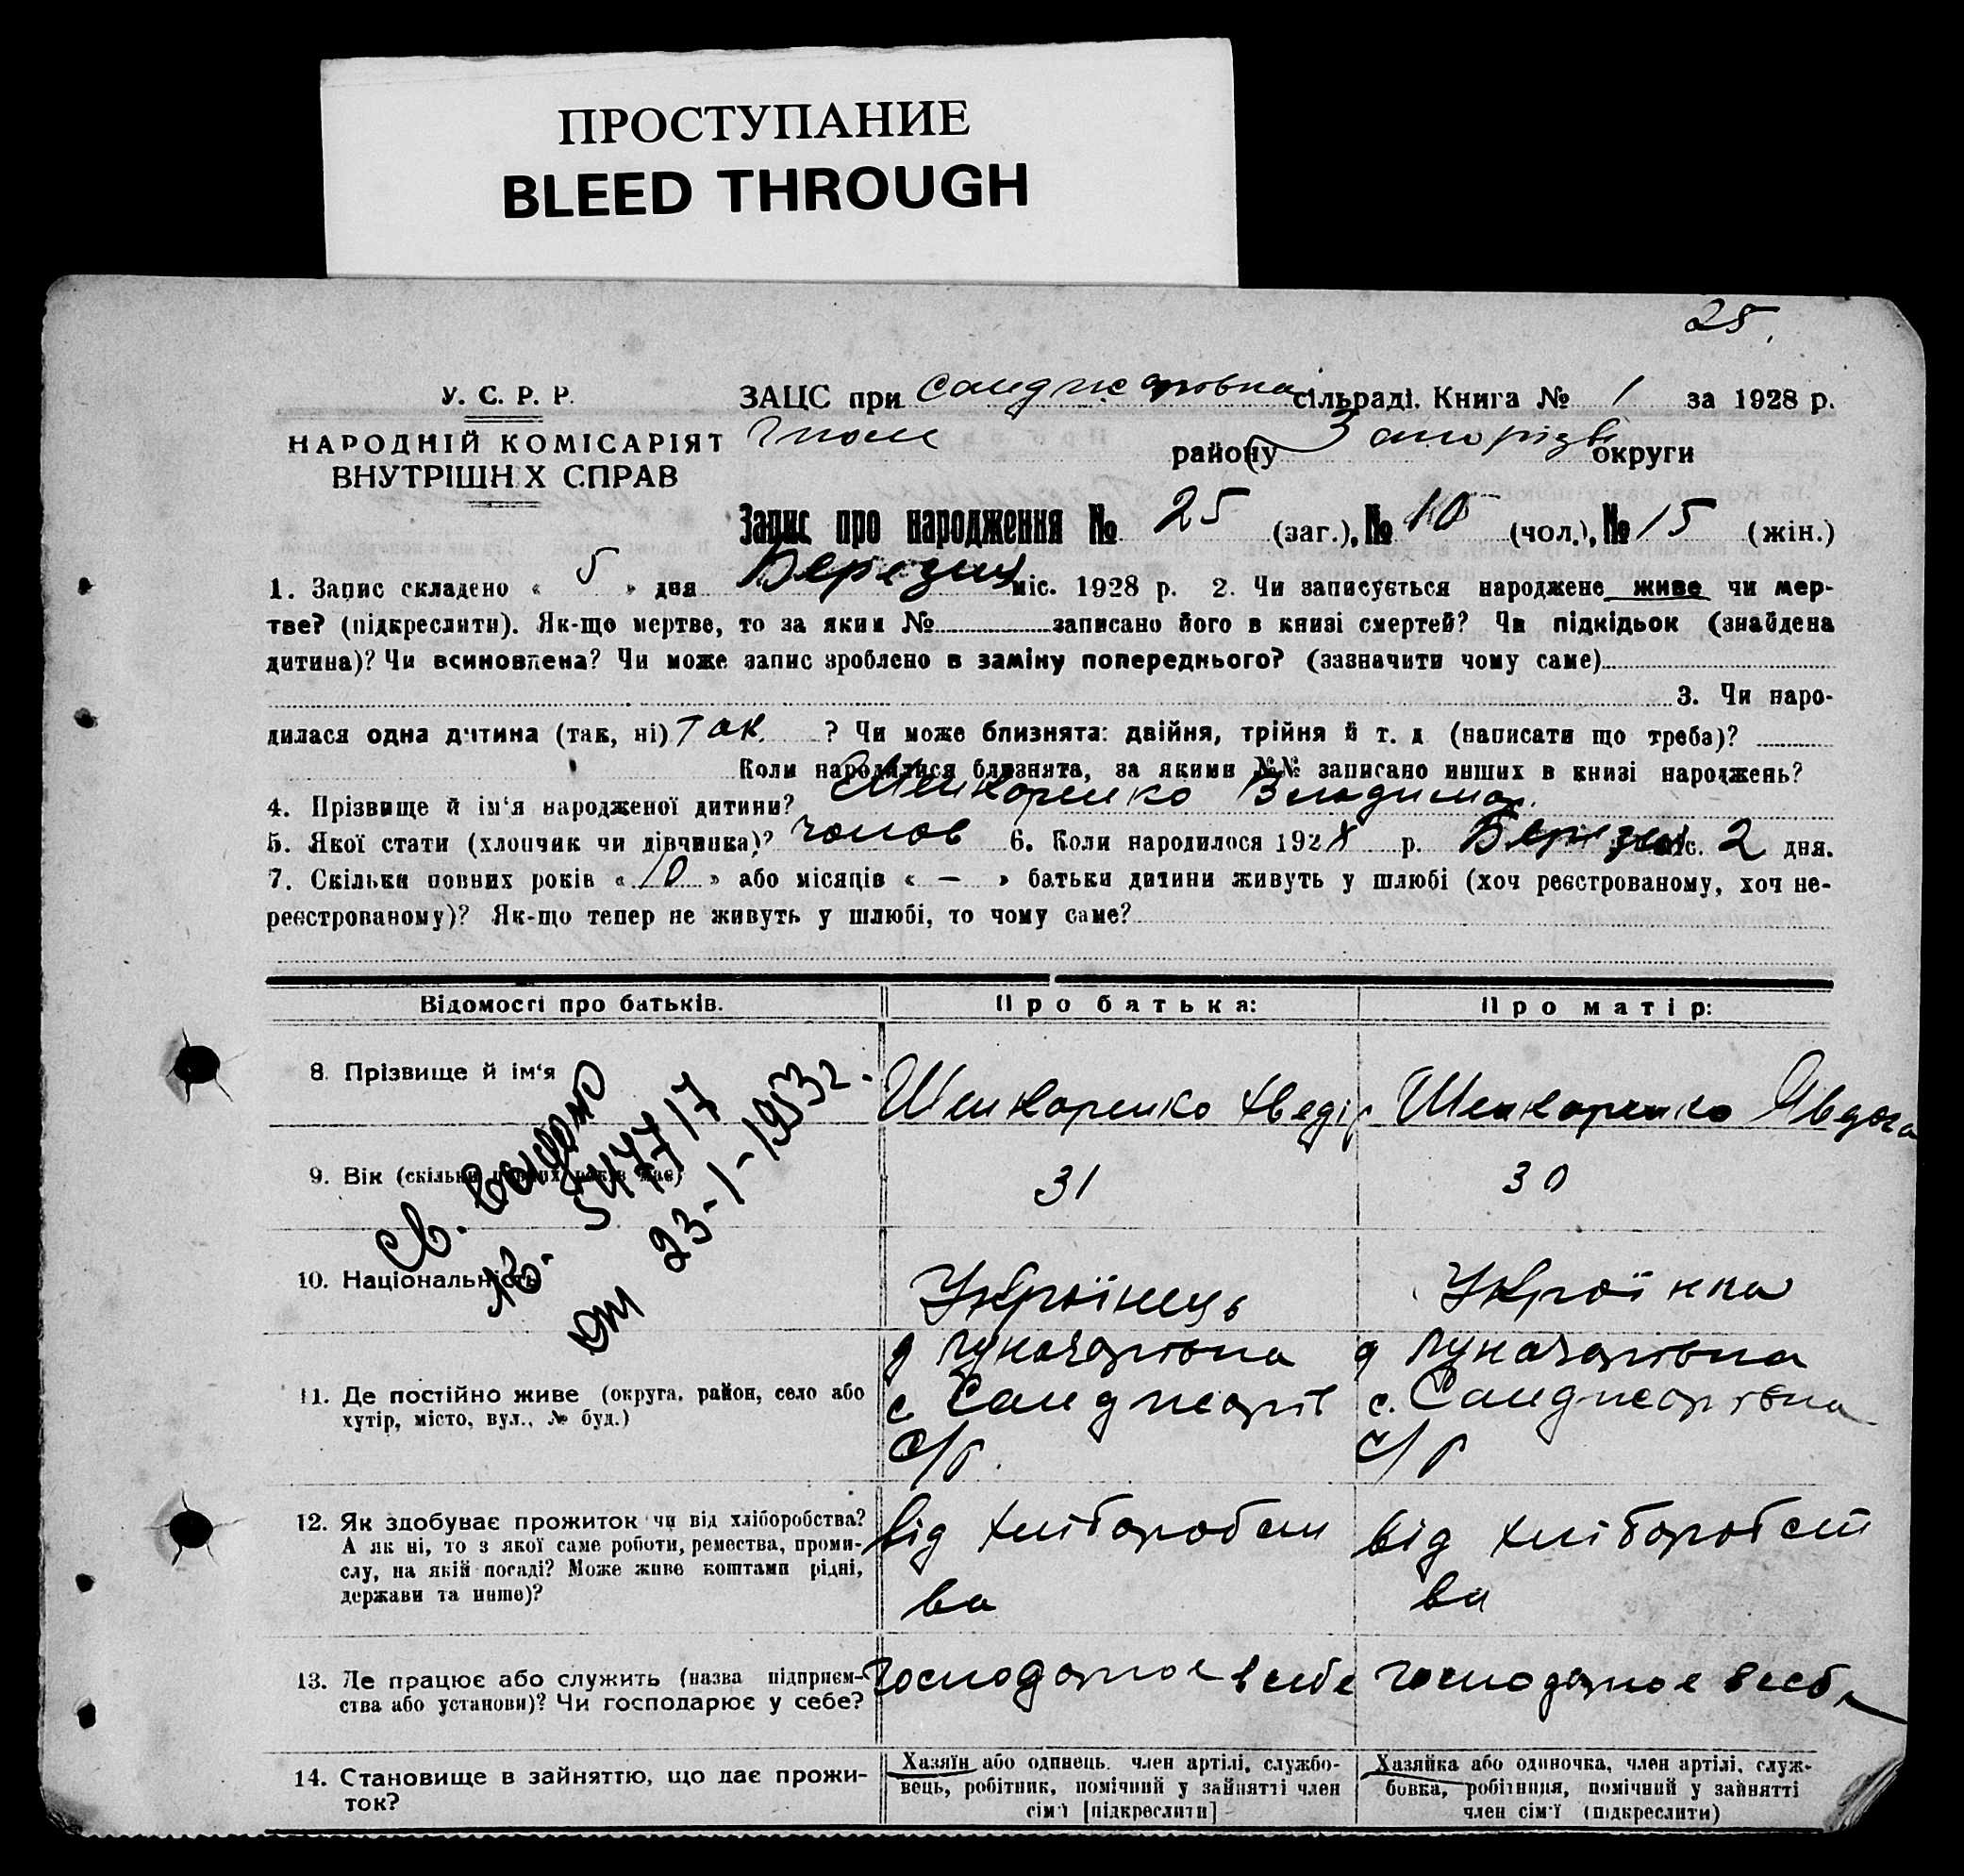 ПРОСТУПАНИЕ
BLEED THROUGH
25.
У. С. Р. Р.
НАРОДНІЙ КОМІСАРІЯТ
ВНУТРІШНІХ СПРАВ
ЗАЦС при Санджаровка сільраді. Книга № 1 за 1928 р.
району Запорізь округи
Запис про народження № 25 (заг.), № 10 (чол.), № 15 (жін.)
1. Запис складено « 5 » дня Березня міс. 1928 р. 2. Чи записується народжене живе чи мер-
тве? (підкреслити). Як-що мертве, то за яким № записано його в книзі смертей? Чи підкідьок (знайдена
дитина)? Чи всиновлена? Чи може запис зроблено в заміну попереднього? (зазначити чому саме)
3. Чи наро-
дилася одна дитина (так, ні) Так ? Чи може близнята: двійня, трійня й т. д (написати що треба)?
Коли народилися близнята, за якими №№ записано инших в книзі народжень?
4. Прізвище й ім'я народженої дитини? Шенкаренко Володимар.
5. Якої стати (хлопчик чи дівчинка)? чолов 6. Коли народилося 1928 р. Березня міс. 2 дня.
7. Скільки повних років « 10 » або місяців « — » батьки дитини живуть у шлюбі (хоч реєстрованому, хоч не-
реєстрованому)? Як-що тепер не живуть у шлюбі, то чому саме?
Відомості про батьків. Про батька: Про матір:
8. Прізвище й ім'я Шенкаренко Хведір Шенкаренко Явдоха
9. Вік (скільки повних років має) 31 30
св. выдано
№ 547717
от 23-1-1953 г.
10. Національність Україінець Українка
11. Де постійно живе (округа, район, село або
хутір, місто, вул., № буд.)
д Луначарівка д Луначарівка
с. Санджарів с. Санджарівка
с/р. с/р
12. Як здобуває прожиток чи від хліборобства?
А як ні, то з якої саме роботи, ремества, проми-
слу, на якій посаді? Може живе коштами рідні,
держави та инше)?
від хліборобст від хліборобст
ва ва
13. Де працює або служить (назва підприєм-
ства або установи)? Чи господарює у себе?
господарює в себе господарює в себе
14. Становище в зайняттю, що дає прожи-
ток?
Хазяїн або одинець. член артілі, службо-
вець, робітник, помічний у зайнятті член
сім'ї [підкреслити]
Хазяйка або одиночка, член артілі, служ-
бовка, робітниця, помічний у зайнятті
член сім'ї (підкреслити)